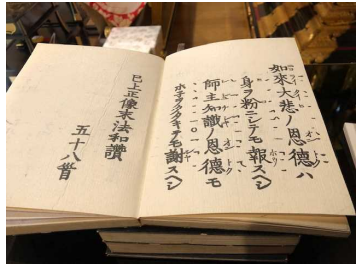 如來大悲ノ恩德ハ
身ヲ粉ニシテモ報スヘシ
師主知識ノ恩德モ
ホネヲクタキテモ謝スヘシ
已上正像末法和讚
五十八首